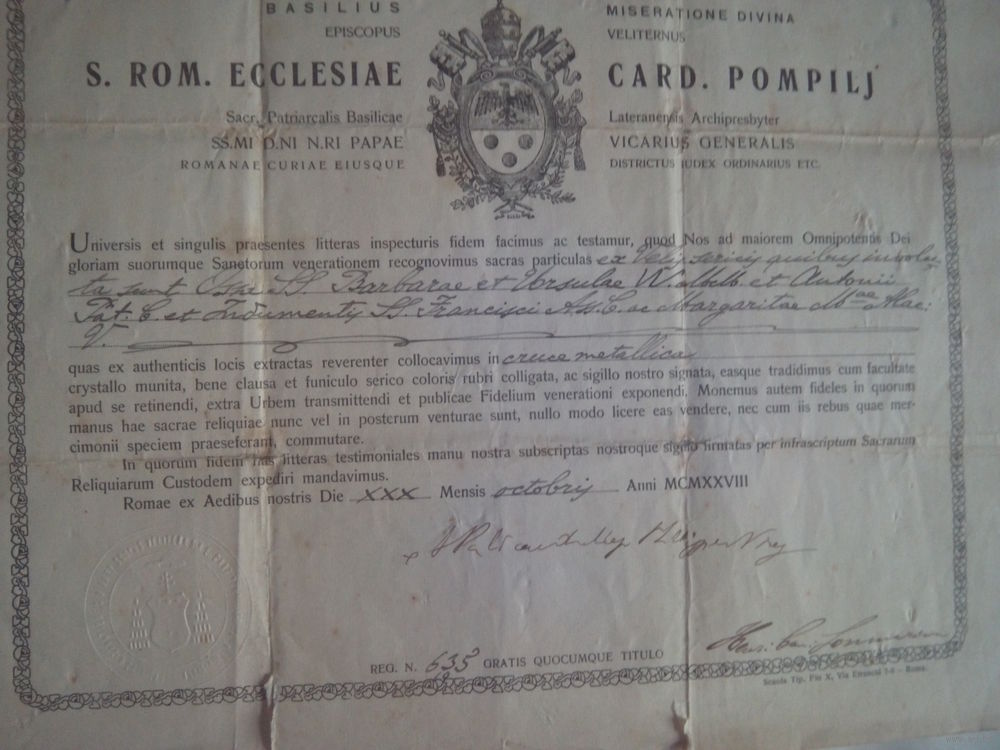 BASILIUS MISERATIONE DIVINA
EPISCOPUS VELITERNUS
S. ROM. ECCLESIAE CARD. POMPILJ
Sacr. Patriarcalis Basilicae Lateranensis Archipresbyter
SS.MI D.NI N.RI PAPAE VICARIUS GENERALIS
ROMANAE CURIAE EIUSQUE DISTRICTUS IUDEX ORDINARIUS ETC.
Universis et singulis praesentes litteras inspecturis fidem facimus ac testamur, quod Nos ad maiorem Omnipotentis Dei
gloriam suorumque Sanctorum venerationem recognovimus sacras particulas ex Velis sericis quibus involu
ta sunt Ossa SS. Barbarae et Ursulae et Antonii
Pat. C. et Indumentis SS. Francisci Ass. C. ac Margaritae Mae Alac:
V.
quas ex authenticis locis extractas reverenter collocavimus in cruce metallica
crystallo munita, bene clausa et funiculo serico coloris rubri colligata, ac sigillo nostro signata, easque tradidimus cum facultate
apud se retinendi, extra Urbem transmittendi et publicae Fidelium venerationi exponendi. Monemus autem fideles in quorum
manus hae sacrae reliquiae nunc vel in posterum venturae sunt, nullo modo licere eas vendere, nec cum iis rebus quae mer-
cimonii speciem praeseferant, commutare.
In quorum fidem has litteras testimoniales manu nostra subscriptas nostroque sigillo firmatas per infrascriptum Sacrarum
Reliquiarum Custodem expediri mandavimus.
Romae ex Aedibus nostris Die XXX Mensis octobris Anni MCMXXVIII
REG. N. 635 GRATIS QUOCUMQUE TITULO
Scuola Tip. Pio X, Via Roma.